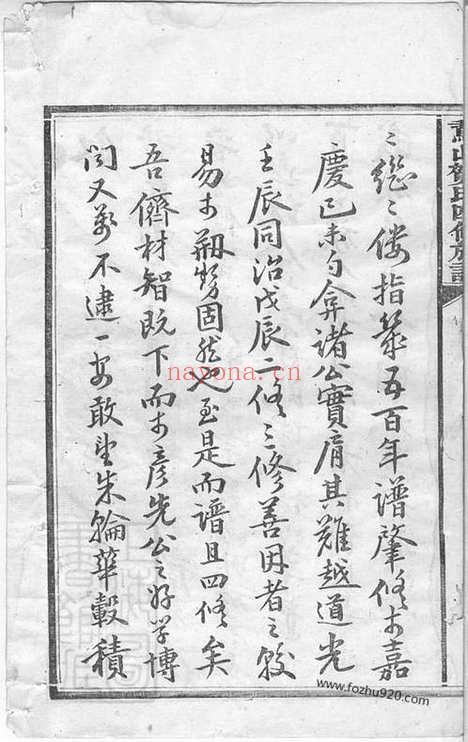 山氏四修族譜
〻繼〻僂指筭五百年譜肇修於嘉
慶己未勻弇諸公實肩其難越道光
壬辰同治戊辰二修三修善因者之較
易於刱勢固然也至是而譜且四修矣
吾儕材智既下而於彥先公之好學博
聞又萬不逮一安敢望朱輪華轂積
nayona.cn
www.fozhu920.com